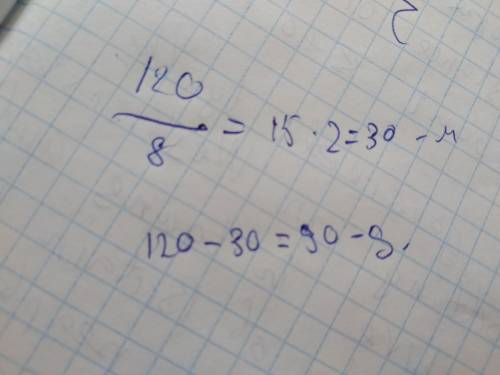 120
8
= 15 · 2 = 30 - м
120 - 30 = 90 - д.